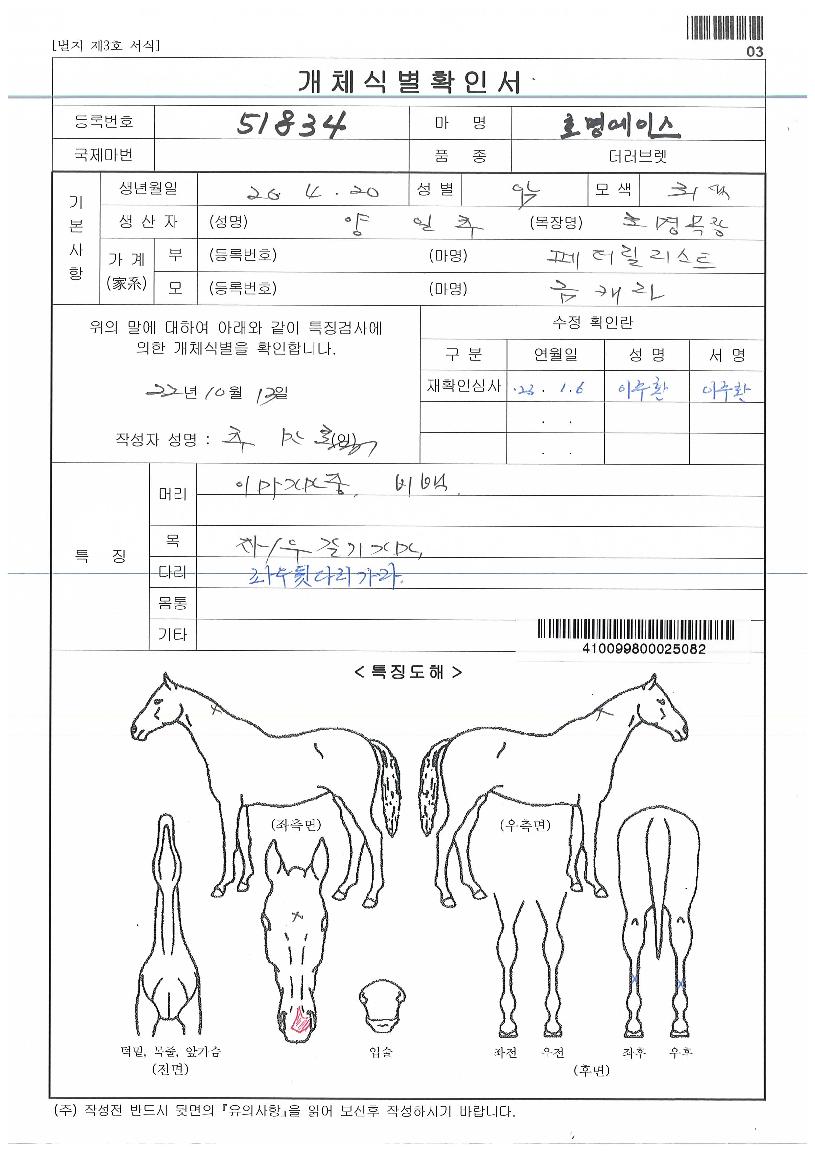 [별지 제3호 서식]
03
개체식별확인서
등록번호 51834 마 명 호명에이스
국제마번 품 종 더러브렛
기본사항
생년월일 20 4 . 20 성 별 모 색 회색
생 산 자 (성명) 양 일 추 (목장명) 목장
가 계 (家系) 부 (등록번호) (마명) 페더럴리스트
모 (등록번호) (마명) 금채라
위의 말에 대하여 아래와 같이 특징검사에
의한 개체식별을 확인합니다.
22년 10월 13일
작성자 성명 : (인)
수정 확인란
구 분 연월일 성 명 서 명
재확인심사 23 . 1.6 이주환 이주환
. .
. .
특 징
머리 이마 중, 비백.
목 좌/우 줄기
다리 좌우뒷다리가마.
몸통
기타
410099800025082
< 특징도해 >
(좌측면) (우측면)
턱밑, 목줄, 앞가슴
(전면)
입술
좌전 우전 좌후 우후
(후면)
(주) 작성전 반드시 뒷면의 『유의사항』을 읽어 보신후 작성하시기 바랍니다.